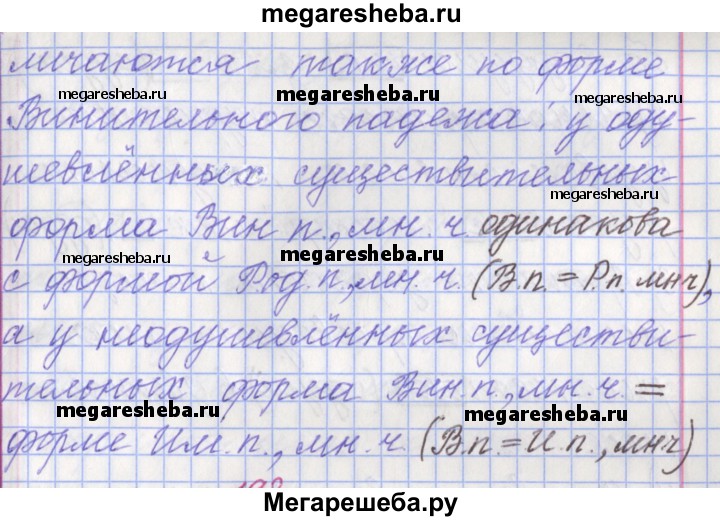 megaresheba.ru
личаются также по форме
megaresheba.ru megaresheba.ru megaresheba.ru
Винительного падежа: у оду-
шевлённых существительных
megaresheba.ru
форма Вин п., мн. ч. одинакова
megaresheba.ru megaresheba.ru
с формой Род. п., мн. ч. (В.п. = Р.п. мн ч),
а у неодушевлённых существи-
тельных форма Вин. п., мн. ч. =
megaresheba.ru megaresheba.ru
форме Им. п., мн. ч. (В.п. = И.п., мн ч)
Мегарешеба.ру